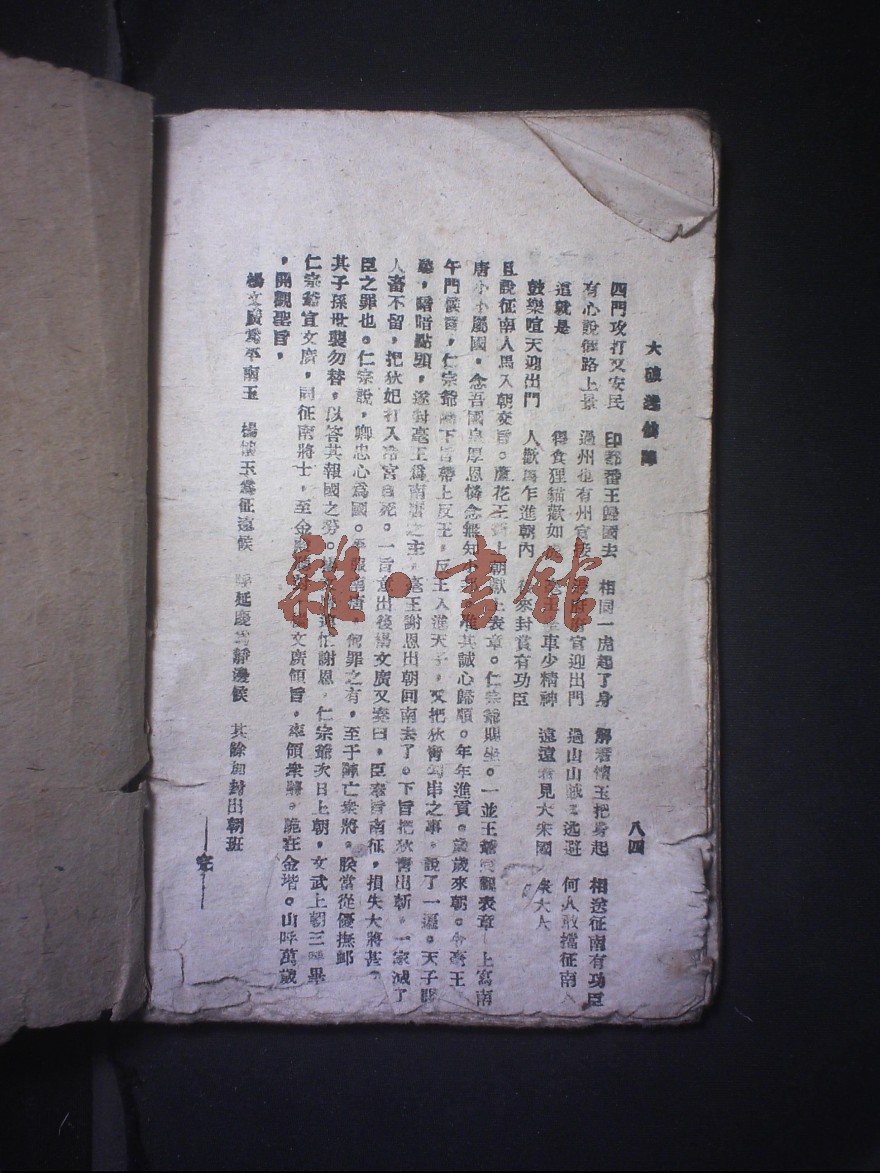 大破迷魂陣
八四
四門攻打又安民 印都番王歸國去 相同一虎起了身 解着懷玉把身起 相送征南有功臣
有心說催路上景 過州也有州官 官迎出門 過山山賊 逃避 何人敢擋征南
這就是 得食狸貓歡如 車少精神 遠遠看見大宋國 大人
鼓樂喧天迎出門 人歡馬乍進朝內 來封賞有功臣
且說征南人馬入朝交旨。蘆花王 上朝獻上表章。仁宗爺賜坐。一並王爺 觀表章 上寫南
唐小小屬國。念吾國皇厚恩憐念無知 其誠心歸順。年年進貢。歲歲來朝。令 王
午門候旨。仁宗爺 下旨帶上反王。反王入進天子。又把狄青勾串之事。說了一遍。天子
聽。暗暗點頭。遂封毫王為南唐之主。毫王謝恩出朝回南去了。下旨把狄青出斬。一家滅了
人畜不留。把狄妃打入冷宮 死。一旨 出後楊文廣又奏曰。臣奉旨南征。損失大將甚
臣之罪也。仁宗說。卿忠心為國。 何罪之有。至于陣亡眾將。朕當從優撫卹
其子孫世襲勿替。以答其報國之勞。 忙謝恩。仁宗爺次日上朝。文武上朝三呼畢
仁宗爺宣文廣。同征南將士。至金 文廣領旨。率領眾將。跪在金堦。山呼萬歲
。開觀聖旨。
楊文廣為平南王 楊懷玉為征遠候 呼延慶 靜邊候 其餘加封出朝班
——完——
雜·書館